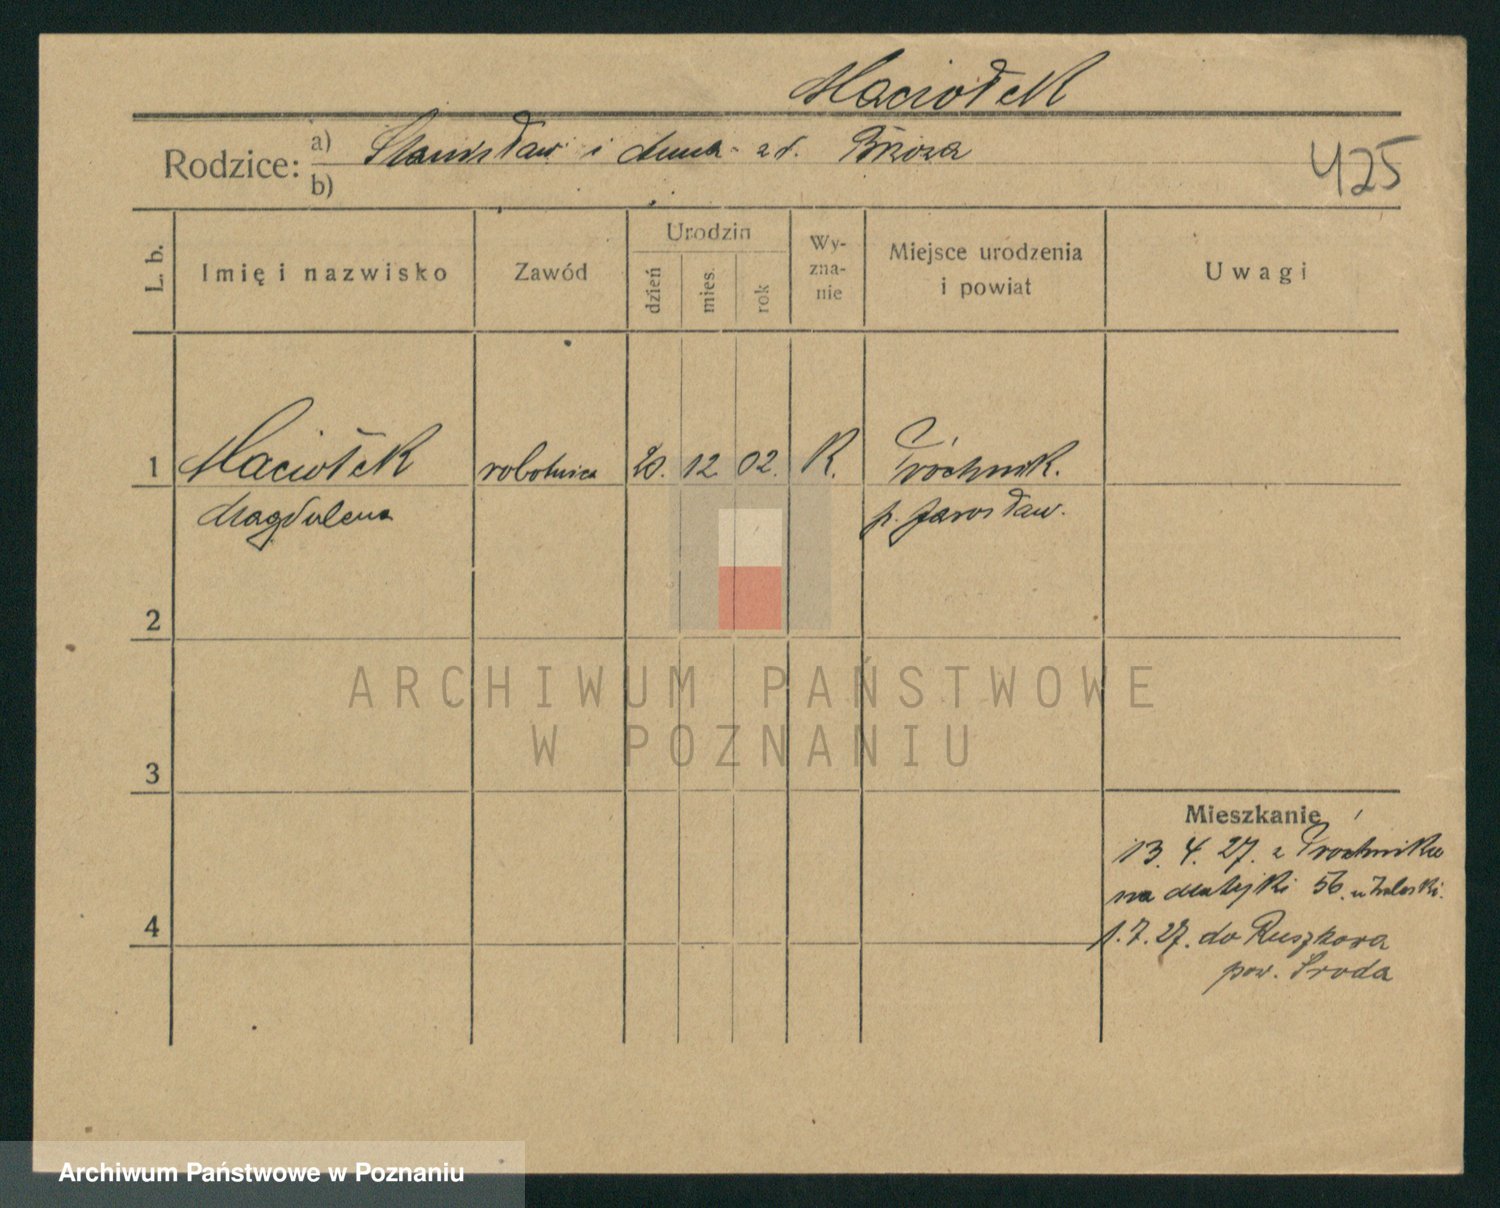 Maciołek
Rodzice: a) Stanisław i Anna zd. Brzoza
b)
425
L. b. Imię i nazwisko Zawód Urodzin dzień mies. rok Wyznanie Miejsce urodzenia i powiat Uwagi
1 Maciołek robotnica 20. 12 02. R. Próchnik.
Magdalena p. Jarosław.
2
ARCHIWUM PAŃSTWOWE
W POZNANIU
3
Mieszkanie
13. 4. 27. z Prochnika
na Matejki 56. u
4
1. 7. 27. do Ruszkowa
pow. Sroda
Archiwum Państwowe w Poznaniu